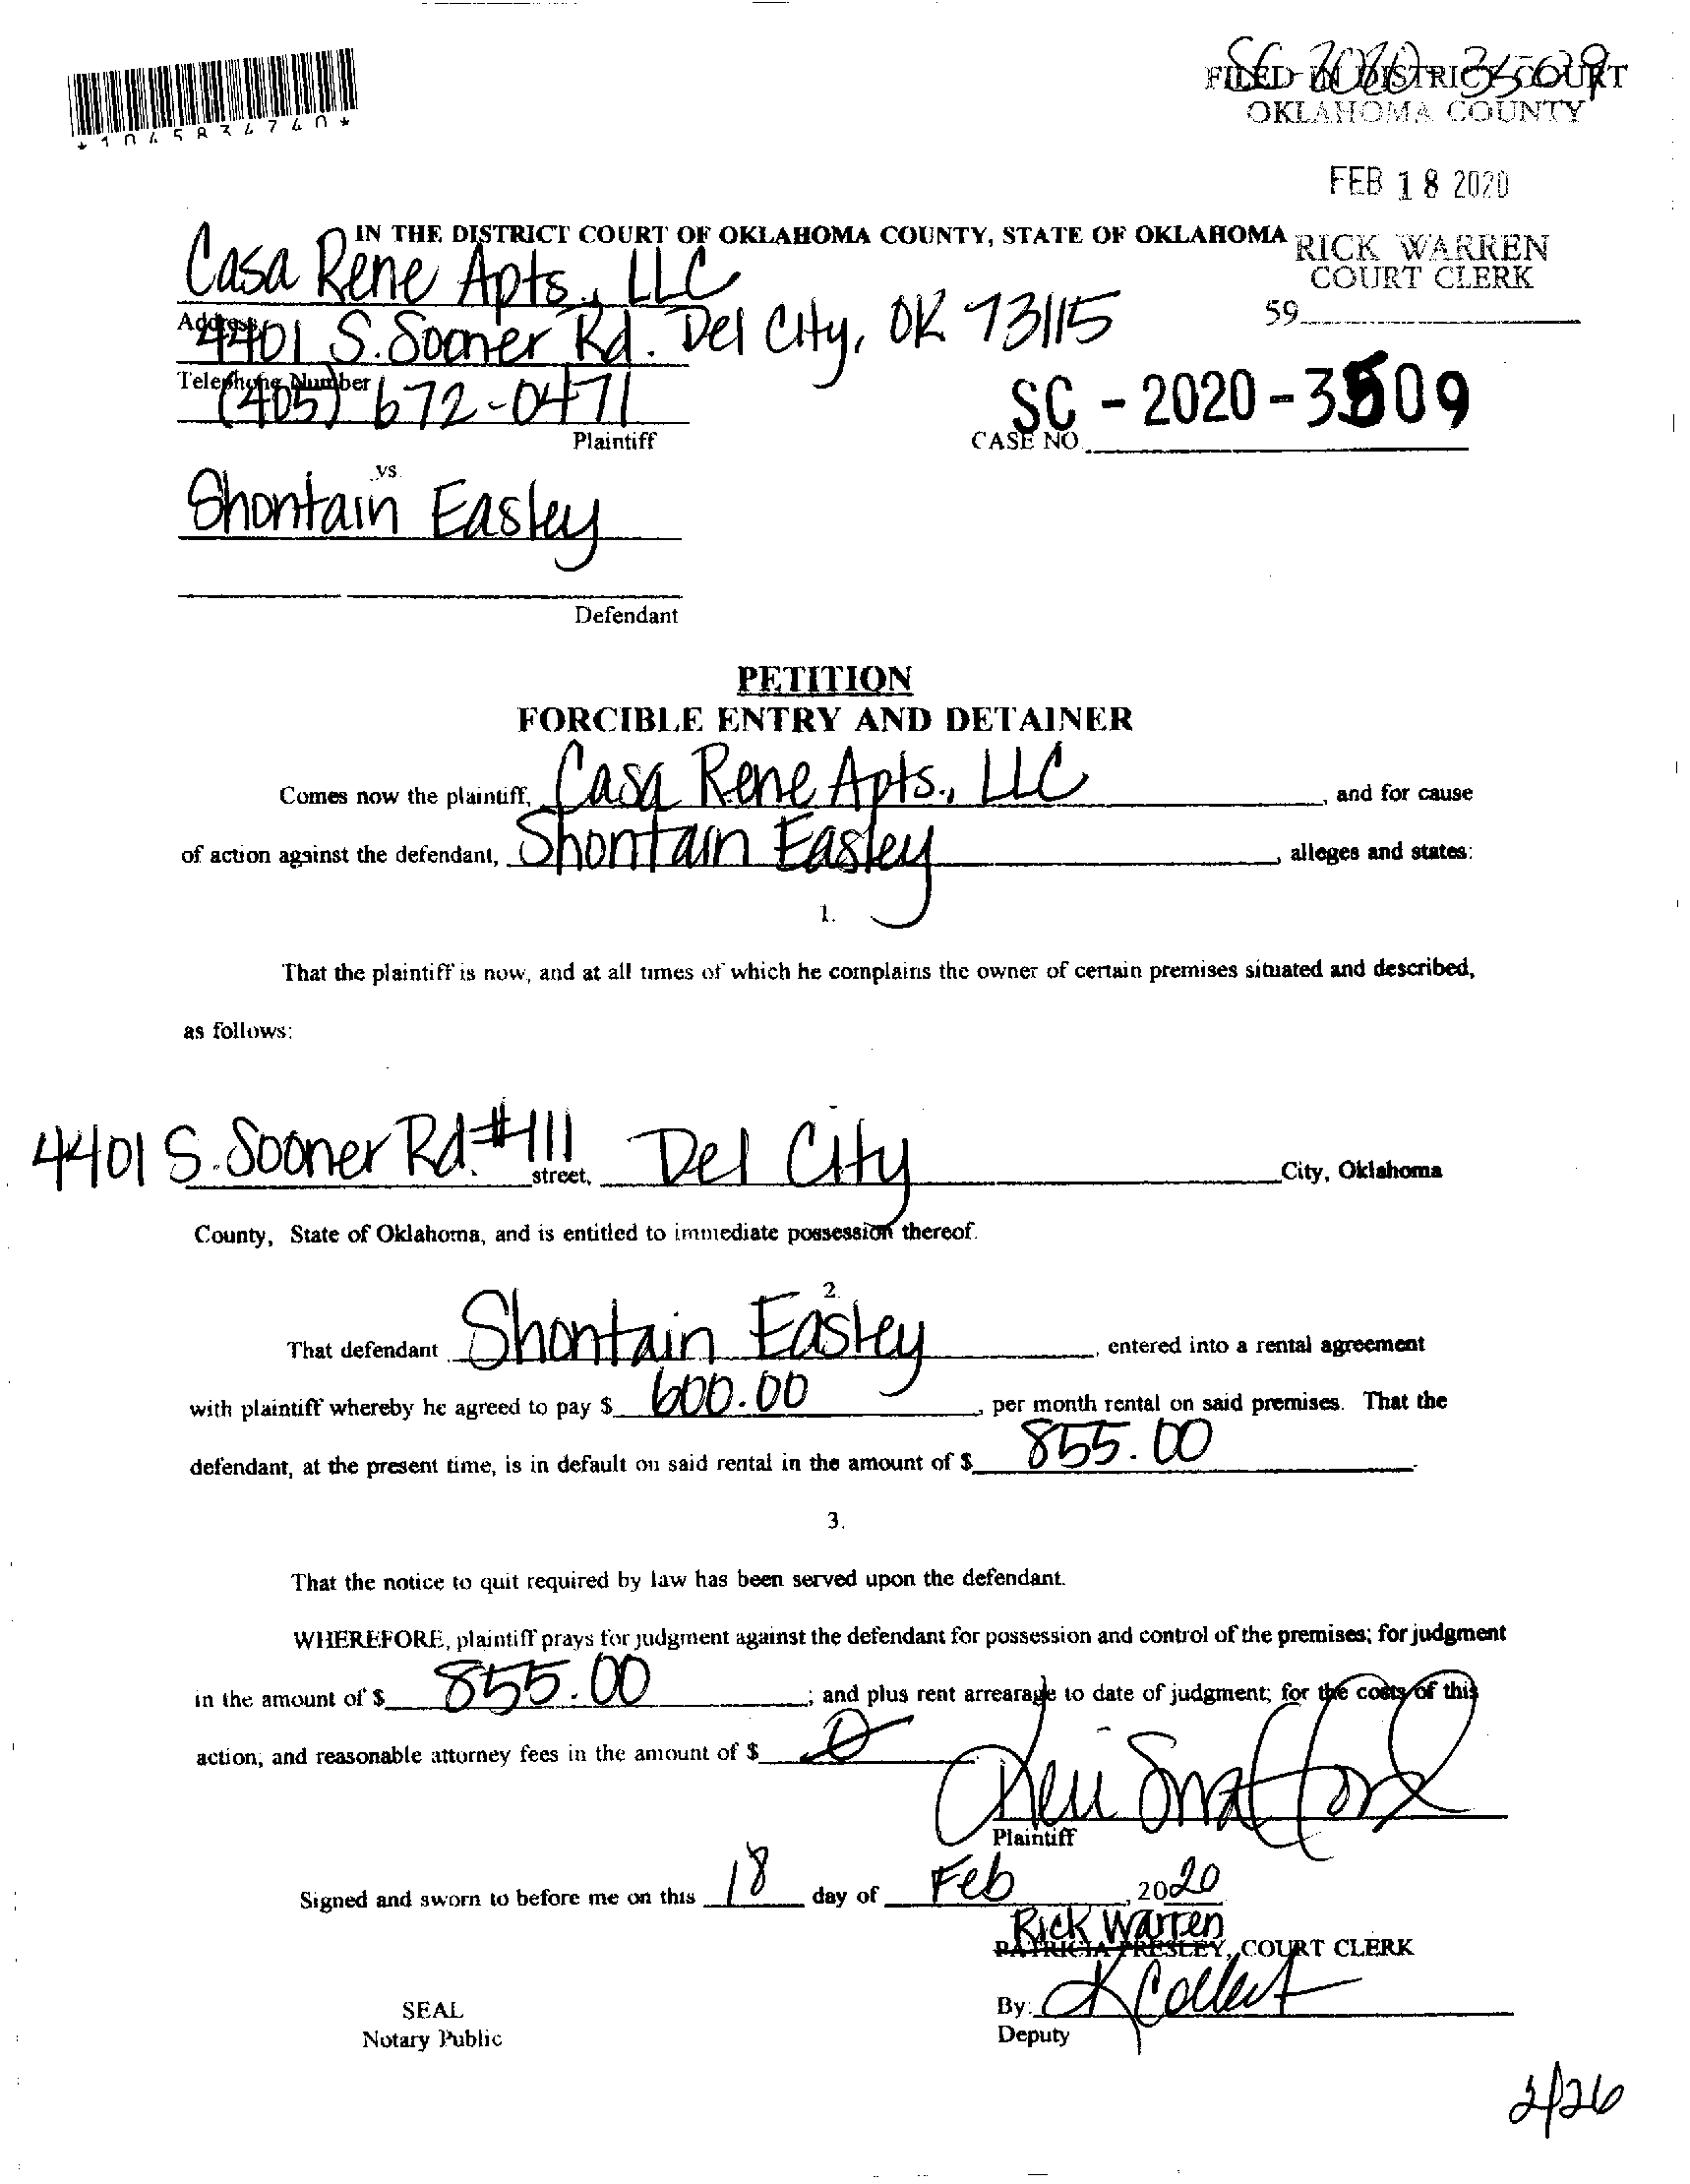 *1045834740*
FILED IN DISTRICT COURT
OKLAHOMA COUNTY
FEB 18 2020
IN THE DISTRICT COURT OF OKLAHOMA COUNTY, STATE OF OKLAHOMA
RICK WARREN
COURT CLERK
59
Casa Rene Apts., LLC
Address
4401 S. Sooner Rd. Del City, OK 73115
Telephone Number
(405) 672-0471
Plaintiff
SC - 2020 -
CASE NO.
vs.
Shontain Easley
Defendant
PETITION
FORCIBLE ENTRY AND DETAINER
Comes now the plaintiff, Casa Rene Apts., LLC, and for cause
of action against the defendant, Shontain Easley, alleges and states:
1.
That the plaintiff is now, and at all times of which he complains the owner of certain premises situated and described,
as follows:
4401 S. Sooner Rd. #111 street, Del City City, Oklahoma
County, State of Oklahoma, and is entitled to immediate possession thereof.
2.
That defendant Shontain Easley, entered into a rental agreement
with plaintiff whereby he agreed to pay $ 600.00, per month rental on said premises. That the
defendant, at the present time, is in default on said rental in the amount of $ 855.00.
3.
That the notice to quit required by law has been served upon the defendant.
WHEREFORE, plaintiff prays for judgment against the defendant for possession and control of the premises; for judgment
in the amount of $ 855.00; and plus rent arrearage to date of judgment; for the costs of this
action, and reasonable attorney fees in the amount of $
Plaintiff
Signed and sworn to before me on this 18 day of Feb, 2020
Rick Warren
PATRICIA PRESLEY, COURT CLERK
By:
Deputy
SEAL
Notary Public
2/26